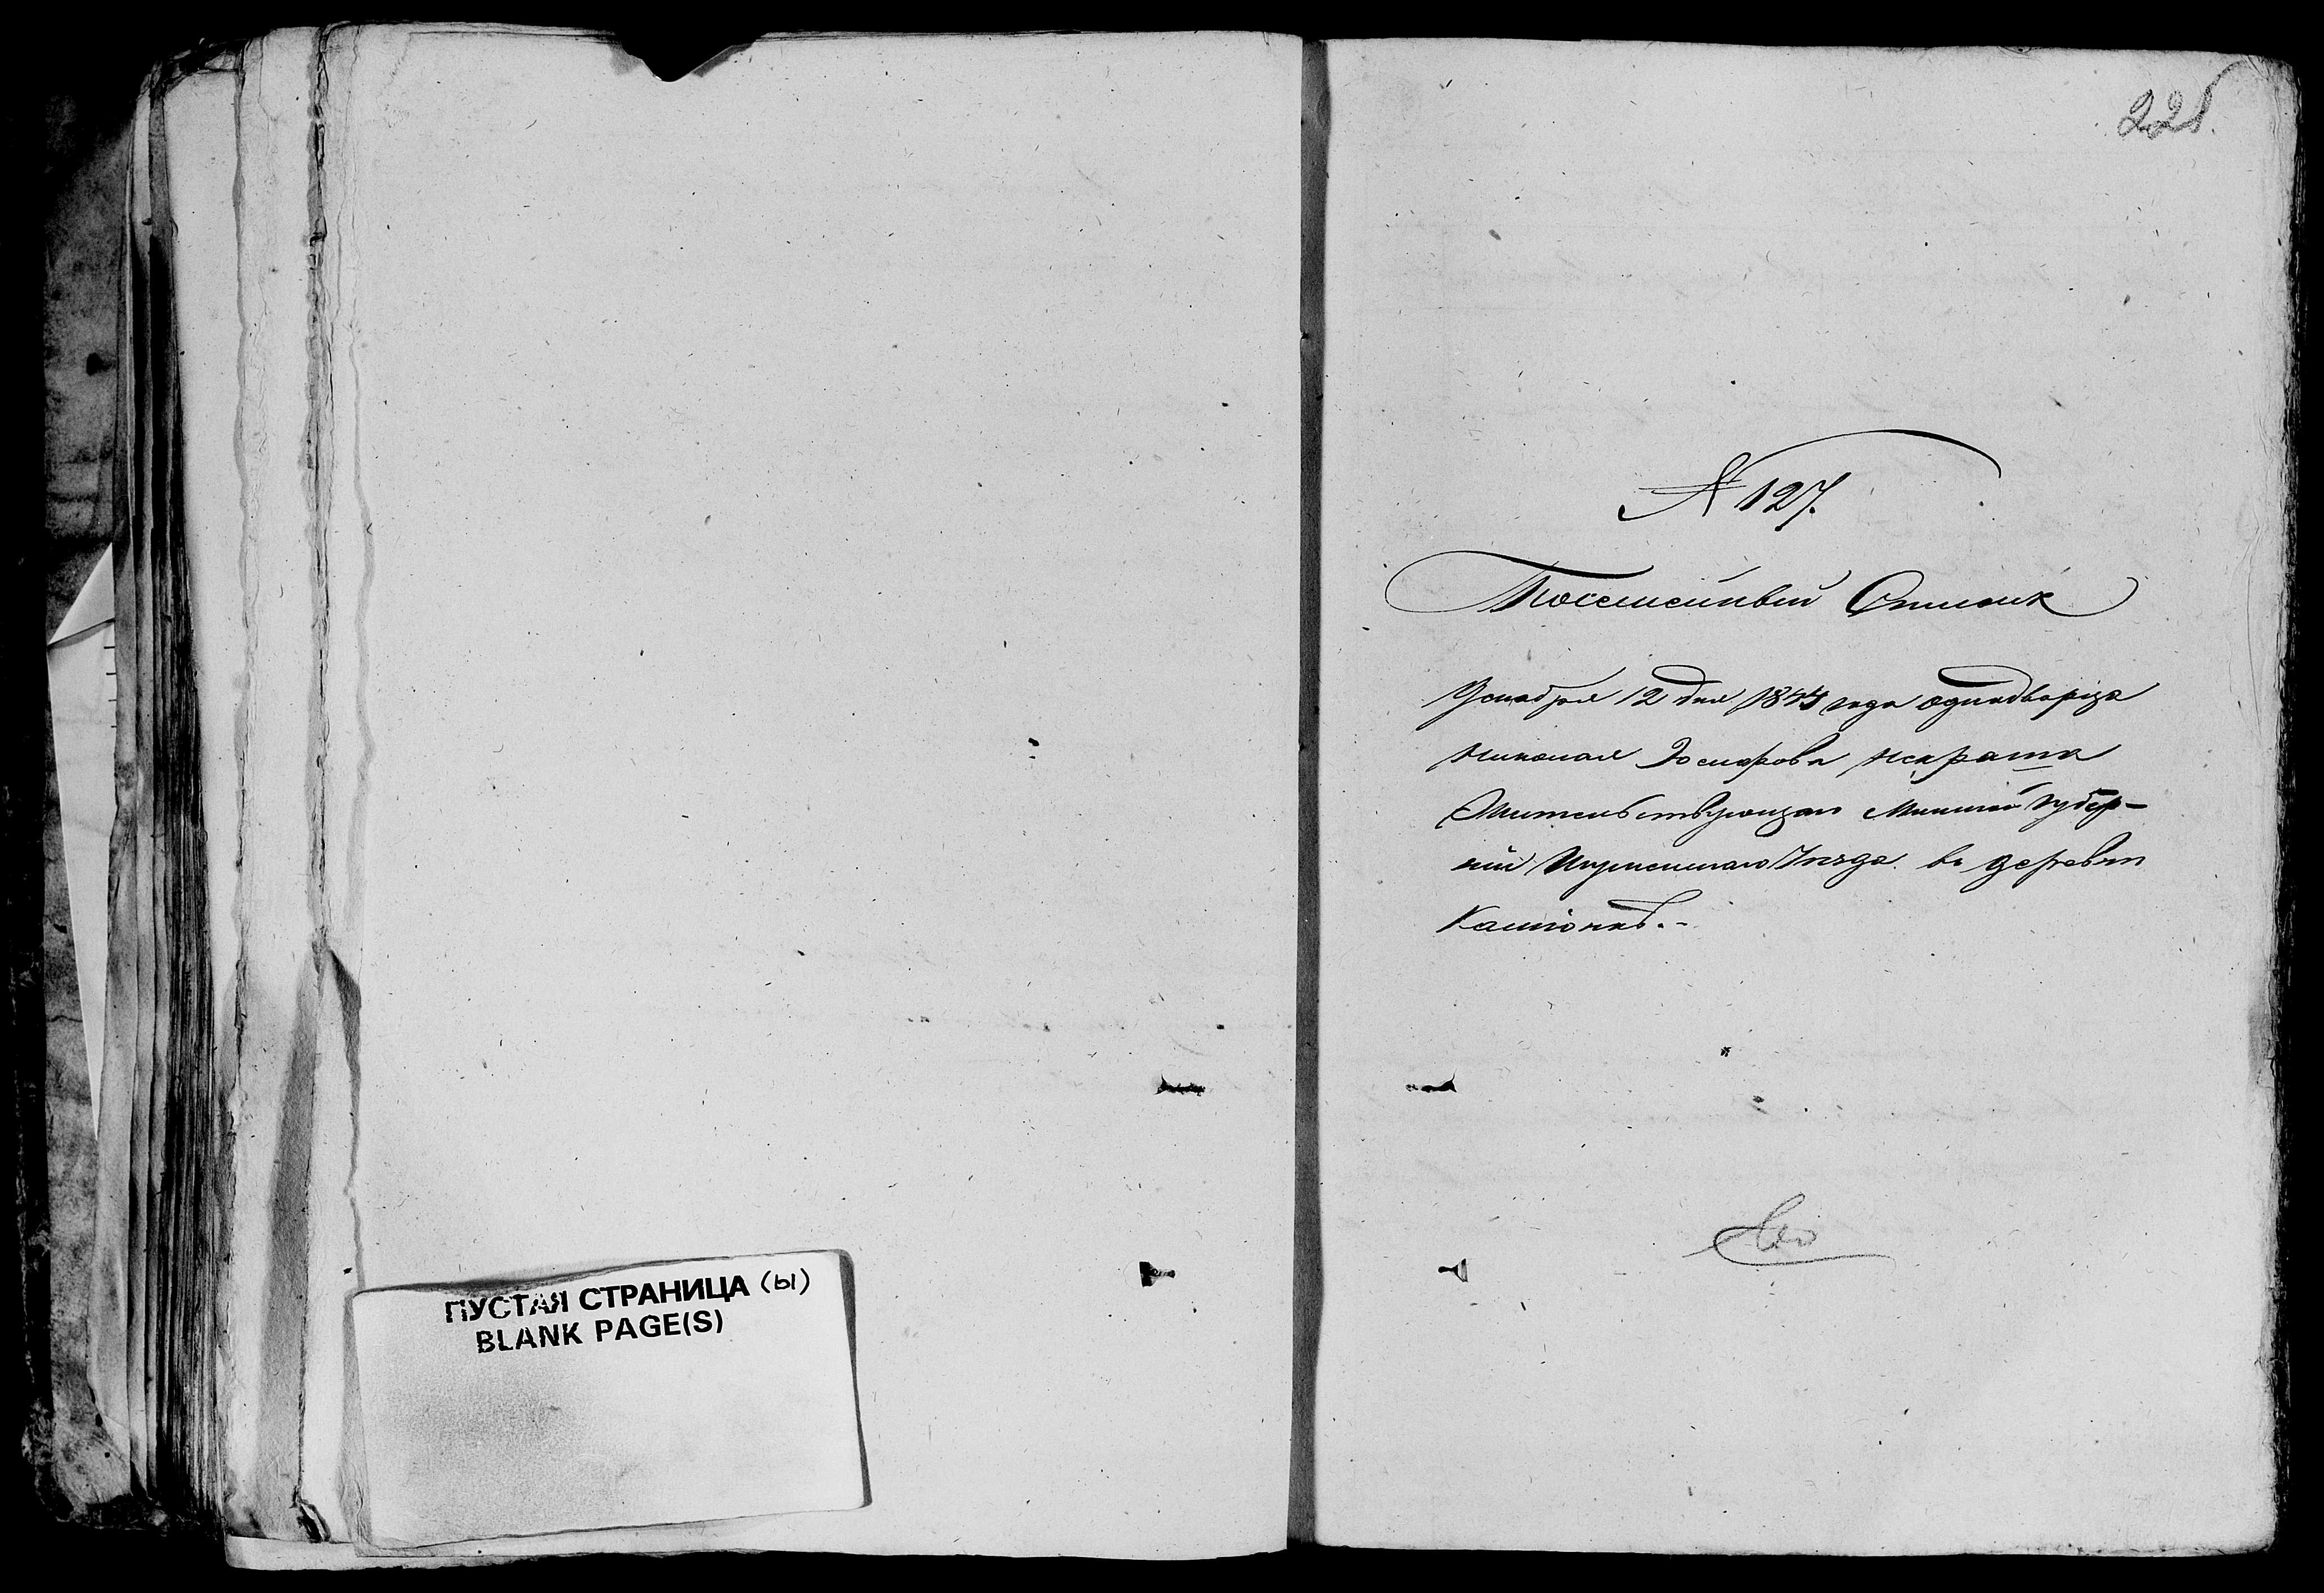 ПУСТАЯ СТРАНИЦА (ы)
BLANK PAGE(S)
№ 127.
Посемейный Список
Декабря 12 дня 1844 года однодворца
Николая Іосифова
Жительствующаго Минской Губер-
ніи Игуменскаго Уезда въ деревни